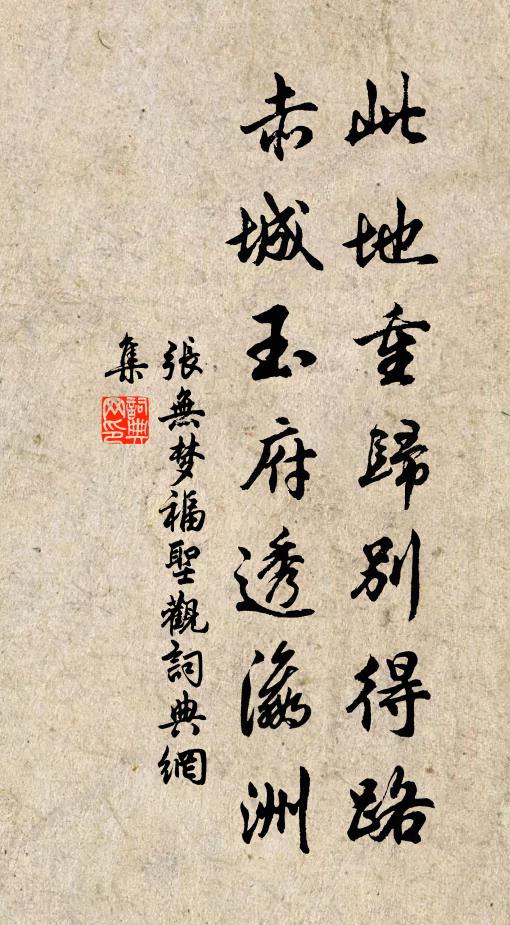 此地重歸別得路
赤城玉府透瀛洲
張無梦福聖觀詞典網
集
詞典
网印